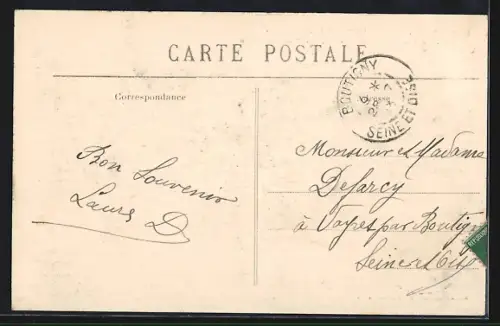 CARTE POSTALE
Correspondance
BOUTIGNY
SEINE ET OISE
Bon Souvenir
Laure D
Monsieur et Madame
Defarcy
à Vayres par Boutigny
Seine et Oise